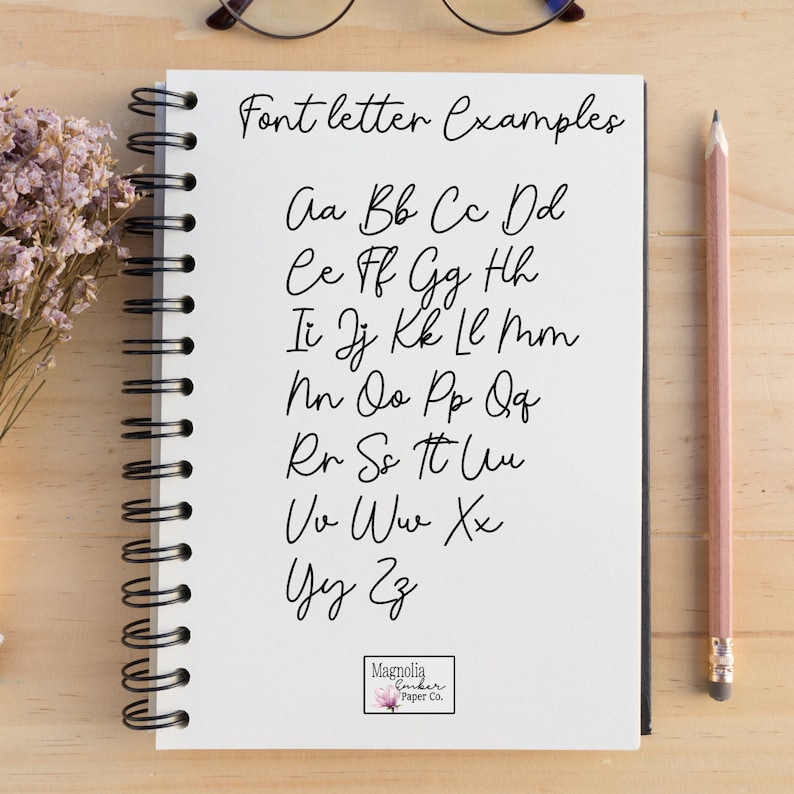 Font letter Examples
Aa Bb Cc Dd
Ee Ff Gg Hh
Ii Jj Kk Ll Mm
Nn Oo Pp Qq
Rr Ss Tt Uu
Vv Ww Xx
Yy Zz
Magnolia
Ember
Paper Co.